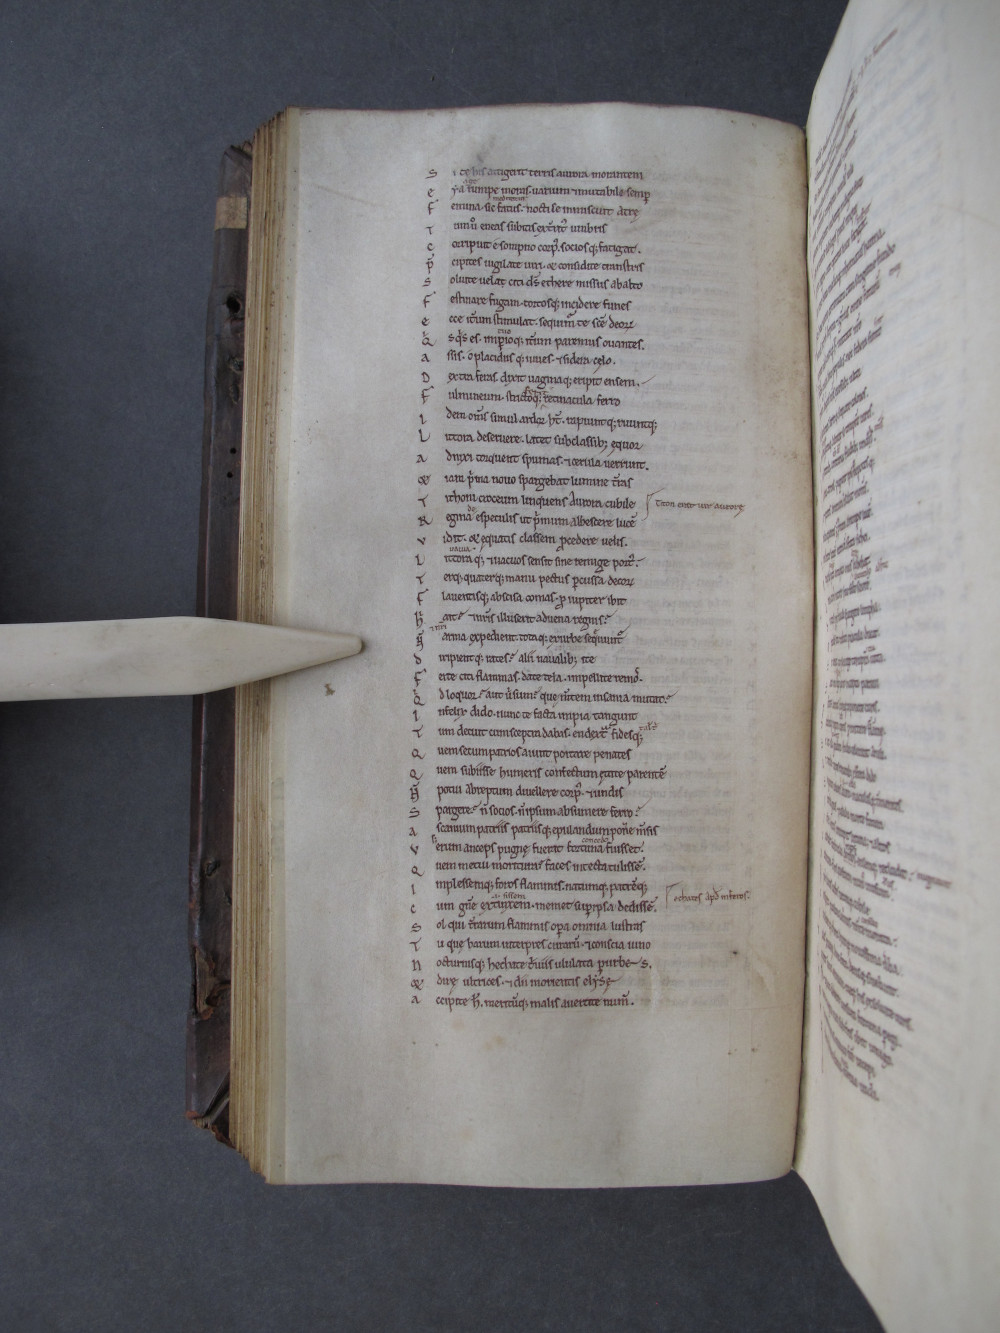 S i te his attigerit terris aurora morantem
e ya rumpe moras. uarium & mutabile semp
F emina. sic fatus. nocti se inmiscuit atrę
T um u eneas subitis exterrit umbris
C orripit e sompno corp. socios q; fatigat.
P cipites uigilate uiri. & considite transtris
S oluite uela citi. ds ethere missus ab alto
F estinare fugam. tortosq; incidere funes
e cce itum stimulat. sequimur te sce deorz
Q sqs es. impioq; itum paremus ouantes.
a ssis. o placidus q; iuues. & sidera celo.
D extra feras. dixit uaginaq; eripit ensem.
F ulmineum. strictoq; retinacula ferro
I dem oms simul ardor ht. rapiuntq; ruuntq;
L ittora deseruere. latet sub classib; equor
a dnixi torquent spumas. & cerula uerrunt.
& iam prima nouo spargebat lumine tras
T ithoni croceum linquens Aurora cubile
Titon erat uir aurorę
R egina e speculis ut primum albescere lucē
V idit. & equatis classem pcedere uelis.
L ittoraq; & uacuos sensit sine remige port.
T erq; quaterq; manu pectus pcussa decor
F lauentisq; abscisa comas. p iupiter ibit
H ic ait & nris illuserit aduena regnis?
N arma expedient. totaq; ex urbe sequunt
D iripientq; rates? alii naualib; ite
F erte citi flammas. date tela. impellite remos.
Q d loquor? aut u sum? que mtem insania mutat?
I nfelix dido. nunc te facta impia tangunt
T um decuit cum sceptra dabas. en dextra fidesq;
Q uem secum patrios aiunt portare penates
Q uem subiisse humeris confectum etate parentē
N potui abreptum diuellere corp. & undis
S pargere? n socios. n ipsum absumere ferro?
a scanium patriis patriisq; epulandum ponere msis
V erum anceps pugnę fuerat fortuna fuisset.
Q uem metui moritura? faces in castra tulissē.
I mplessemq; foros flammis. natumq; patrēq;
C um gne extinxem. memet sup ipsa dedissē.
echates apd inferos.
S ol qui trarum flammis opa omnia lustras
T u que harum interpres curarū & conscia iuno
N octurnisq; hechate triuiis ululata p urbes.
& dirę ultrices. & dii morientis elysę
a ccipite h. meritūq; malis auertite num.